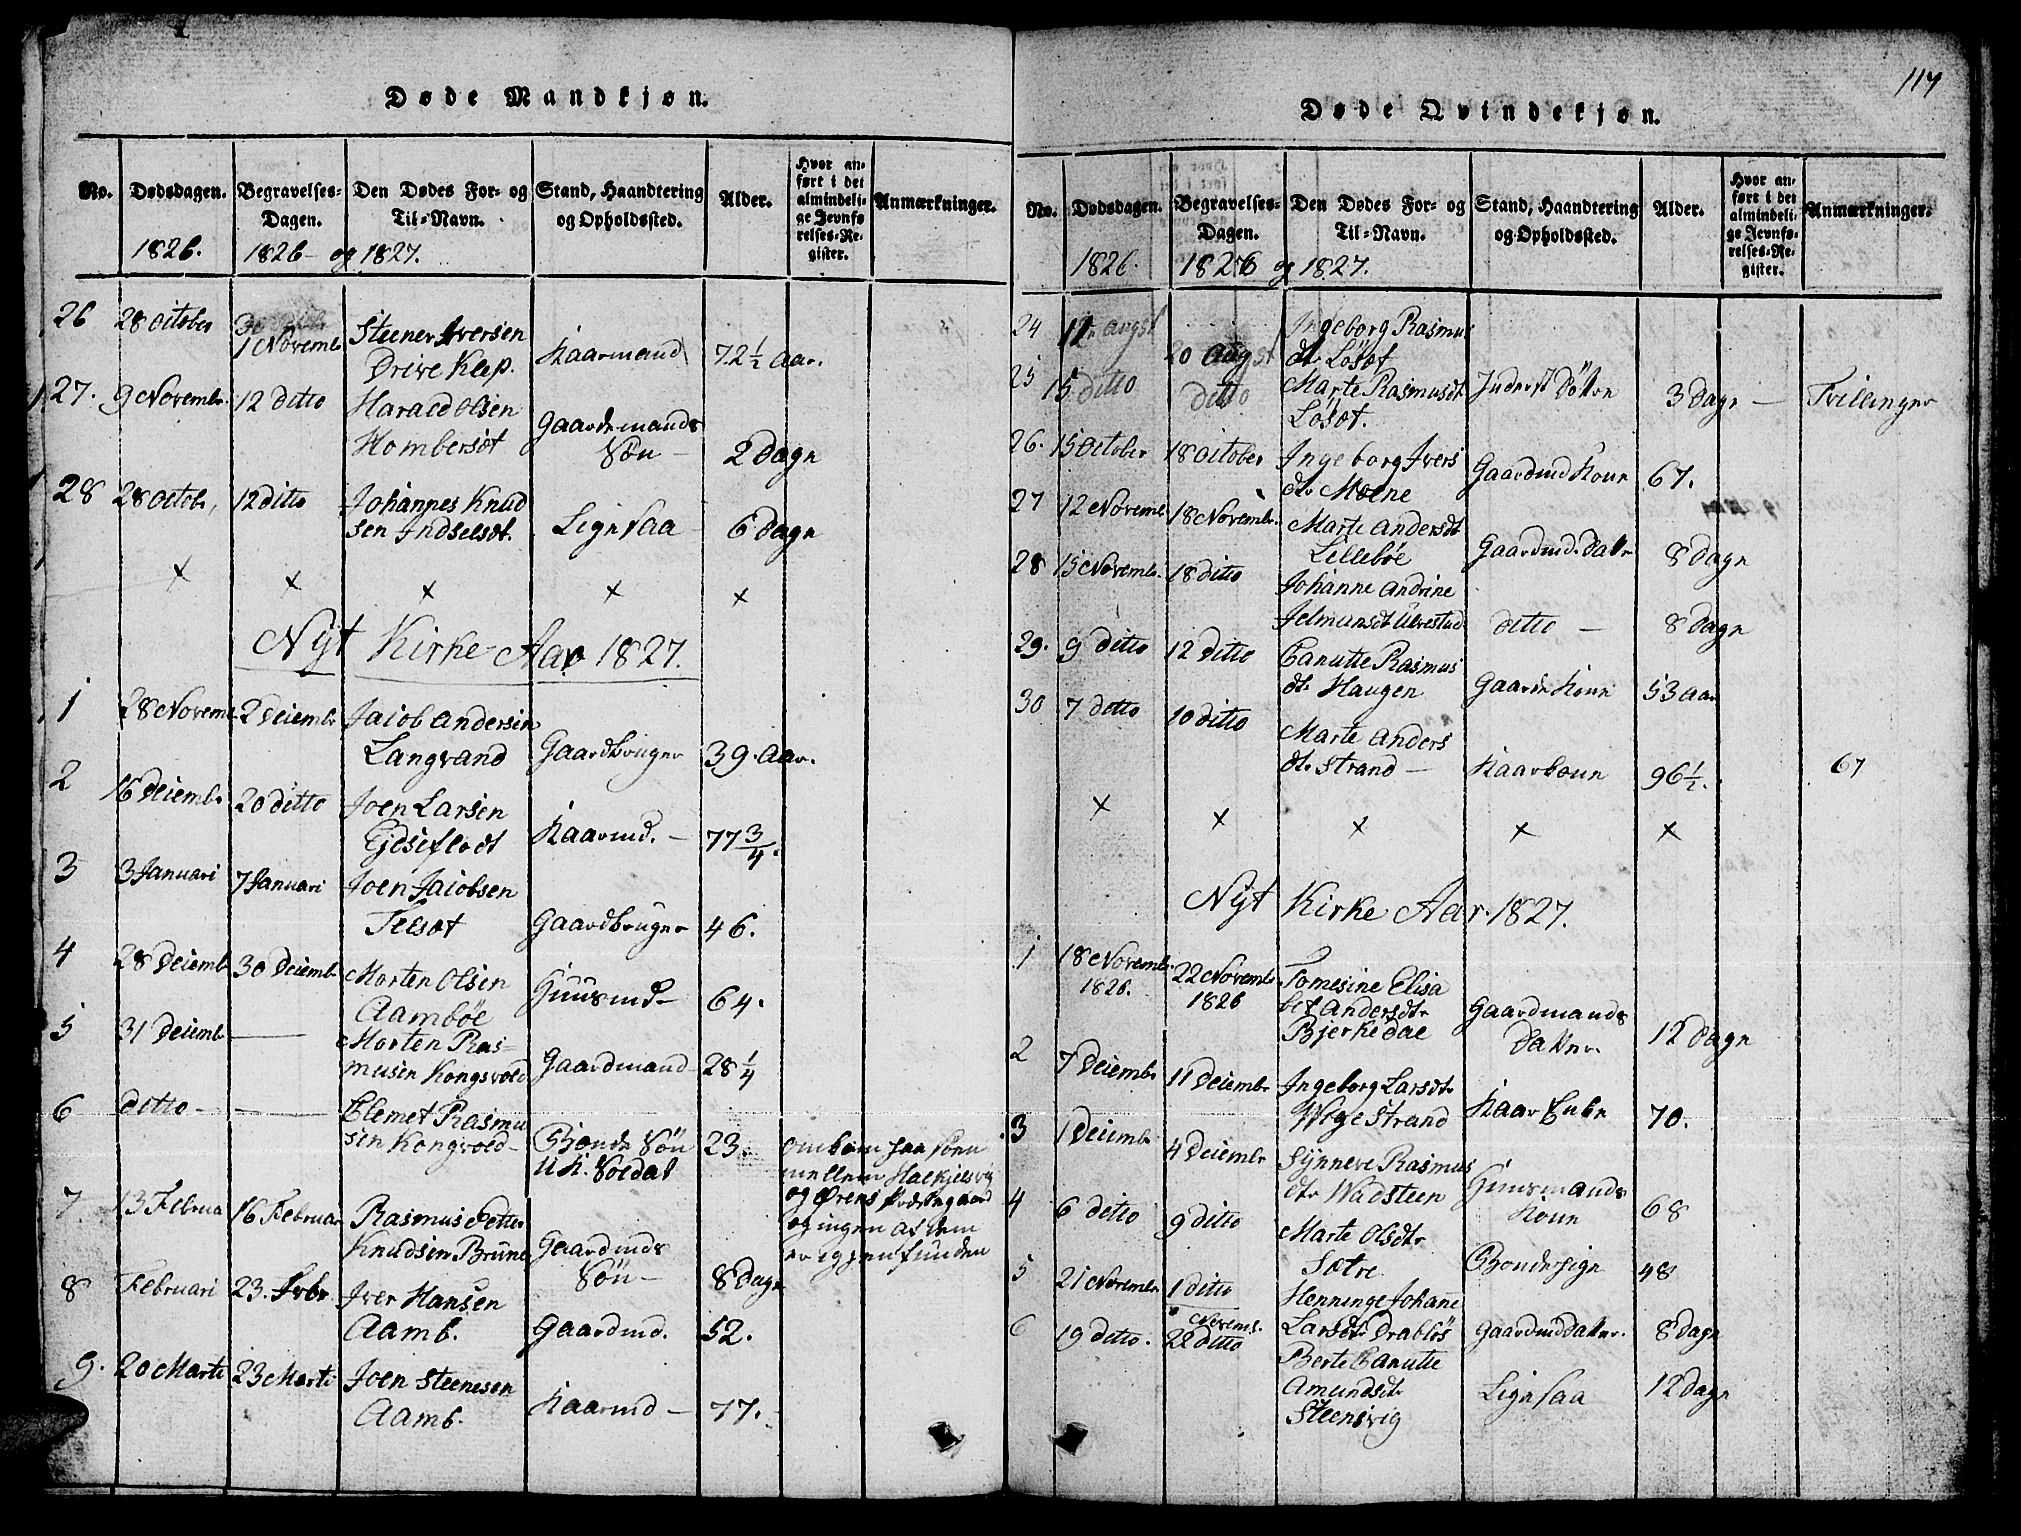 Døde Mandkjøn.
No. Dødsdagen. Begravelses-Dagen. Den Dødes For- og Til-Navn. Stand, Haandtering og Opholdssted. Alder. Hvor anført i det almindelige Jevnførelses-Register. Anmærkninger.
1826. 1826 - og 1827.
26 28 October 1 Novemb Steener Iversen
Drive Klep. Kaarmand 72 1/2 Aar.
27. 9 Novembr. 12 ditto Harald Olsen
Hombersæt Gaardemands
Søn - 2 Dage
28 28 Octobr, 12 ditto Johannes Knud
sen Indselsæt. Ligesaa 6 Dage
x x x x x
Nyt Kirke-Aar 1827.
1 28 Novemb 2 Decembr Jacob Andersen
Langvand Gaardbruger 39 Aar.
2 16 Decembr 20 ditto Joen Larsen
Kaarmd. - 77 3/4.
3 3 Januari 7 Januari Joen Jacobsen
Gaardbruger 46.
4 28 Decemb 30 Decembr Morten Olsen
Aambøe Huusmd 64.
5 31 Decemb — Morten Ras-
musen Kongsvold Gaardmand 28 1/4
6 ditto - — Clemet Rasmu
sen Kongvold - Bonde Søn 23.
U.K. Soldat
omkom paa Søen
mellem Halkjelsvig
og Ørens Præstegaard
og ingen af dem
er igjenfunden
7. 13 Februa 16 Februar Rasmus Petter
Knudsen Brune Gaardmds
Søn - 8 Dage
8 Februari 23. Febr. Iver Hansen
Aamb. Gaardmd. 52.
9. 20 Marti 23 Marti Joen Steenesen
Aamb. Kaarmd - 77.
117
Døde Qvindekjøn.
No. Dødsdagen. Begravelses-Dagen. Den Dødes For- og Til-Navn. Stand, Haandtering og Opholdssted. Alder. Hvor anført i det almindelige Jevnførelses-Register. Anmærkninger.
1826. 1826 og 1827.
24 Augst 20 Augst Ingeborg Rasmus
dtr Løsæt
25 15 ditto ditto Marte Rasmusdt
Løsæt. Inderst Døttre 3 Dage - Tvillinger
26. 15 October 18 October Ingeborg Ivers
dtr Moene Gaardmd Kone 67.
27 12 Novemb 18 Novembr. Marte Andersdt
Lillebøe Gaardmds Datter 8 Dage
28 15 Novembr. 18 ditto Johanne Andrine
Ulvestad ditto - 8 Dage
29. 9 ditto 12 ditto Canutte Rasmus
dtr Haugen Gaards Kone 53 Aar
30 7 ditto 10 ditto Marte Anders
dtr Strand - Kaarkone 96 1/2. 67
x x x x x
Nyt Kirke Aar 1827.
1 18 Novembr. 22 Novembr Tomesine Elisa
1826. 1826 bet Andersdtr
Bjerkedal Gaardmands
Datter. 12 Dage
2 7 Decembr 11 Decembr Ingeborg Larsdtr
Strand Kaar Enke 70.
3 1 Decembr 4 Decembr Synneve Rasmus
dtr Wadsteen Huusmands
Kone 68
4 6 ditto 9 ditto Marte Olsdtr
Sætre Bondepige 48
5 21 Novembr 1 ditto Henninge Johanne
Larsdt Drabløs Gaardmd Datter. 8 Dage
6 19 ditto. Novemb.
22 ditto Berte Canutte
Amundsdtr
Steensvig Ligesaa 12 Dage